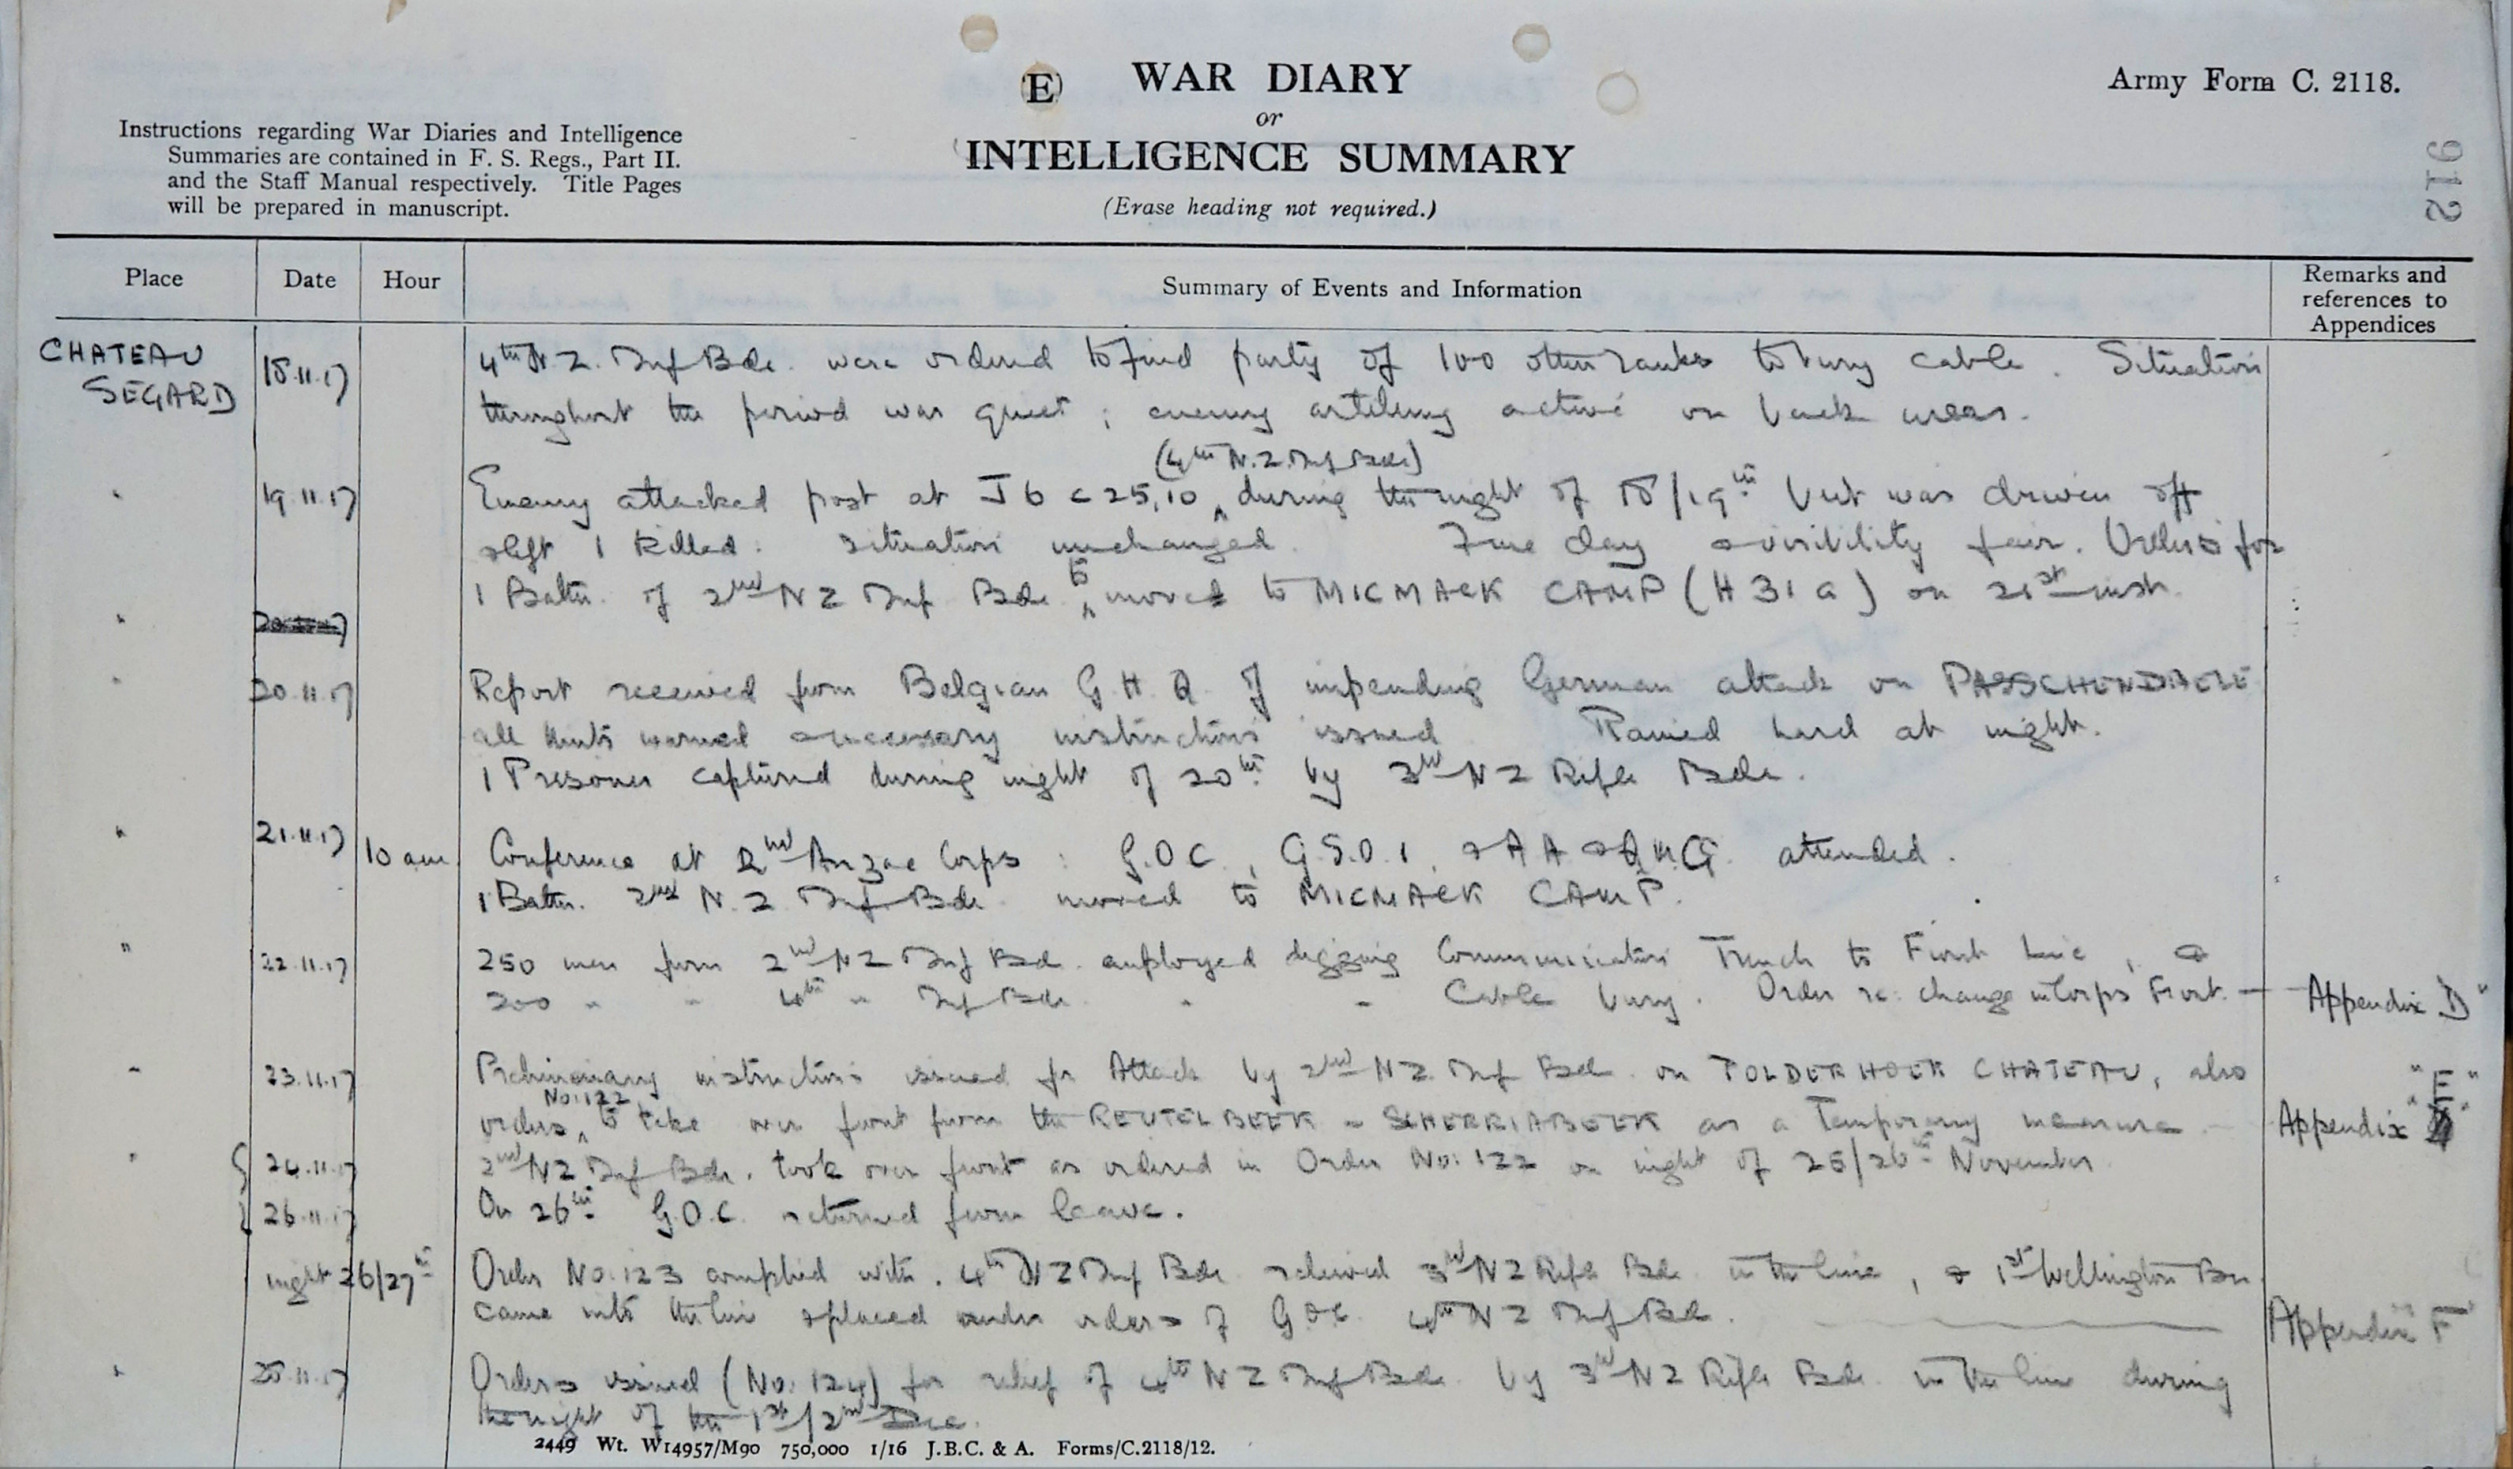 (E) WAR DIARY
or
INTELLIGENCE SUMMARY
(Erase heading not required.)
Army Form C. 2118.
912
Instructions regarding War Diaries and Intelligence
Summaries are contained in F. S. Regs., Part II.
and the Staff Manual respectively. Title Pages
will be prepared in manuscript.
Place Date Hour Summary of Events and Information Remarks and
references to
Appendices
CHATEAU
SEGARD 18.11.17 4th N.Z. Inf Bde. were ordered to find party of 100 other ranks to bury cable. Situation
throughout the period was quiet; enemy artillery active on back areas.
(4th N.Z. Inf Bde)
" 19.11.17 Enemy attacked post at J 6 c 25,10 ^ during the night of 18/19th but was driven off
& left 1 killed. Situation unchanged. Fine day & visibility fair. Orders for
1 Battn. of 2nd NZ Inf Bde ^ to move to MICMACK CAMP (H 31 a) on 21st inst.
"
" 20.11.17 Report received from Belgian G.H.Q. of impending German attack on PASSCHENDAELE
all units warned & necessary instructions issued. Rained hard at night.
1 Prisoner captured during night of 20th by 3rd NZ Rifle Bde.
" 21.11.17 10 am Conference at 2nd Anzac Corps: G.O.C., G.S.O.1. & AA & QMG. attended.
1 Battn. 2nd N.Z. Inf Bde moved to MICMACK CAMP.
" 22.11.17 250 men from 2nd NZ Inf Bde. employed digging Communication Trench to Front Line, &
200 " " 4th " Inf Bde. " " Cable bury. Order re: change in Corps Front. — Appendix D"
" 23.11.17 Preliminary instructions issued for Attack by 2nd NZ. Inf Bde. on POLDERHOEK CHATEAU, also "E"
orders ^ No: 122 to take over front from the REUTELBEEK - SCHERRIABEEK as a Temporary measure — Appendix
" 24.11.17 2nd NZ Inf Bde. took over front as ordered in Order No: 122 on night of 25/26th November
26.11.17 On 26th G.O.C. returned from leave.
night 26/27th Order No: 123 complied with. 4th NZ Inf Bde relieved 3rd NZ Rifle Bde in the line, & 1st Wellington Bn.
came into the line & placed under orders of G.O.C. 4th NZ Inf Bde. Appendix "F"
" 28.11.17 Orders issued (No: 124) for relief of 4th NZ Inf Bde. by 3rd NZ Rifle Bde. in the line during
the night of the 1st/2nd Dec.
2449 Wt. W14957/M90 750,000 1/16 J.B.C. & A. Forms/C.2118/12.